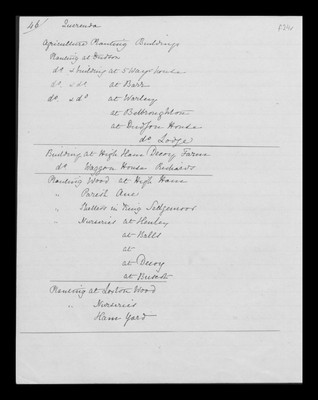 46 Querenda 524
Agriculture Planting Buildings
Planting at Hudson
do & building at 5 Ways House
do & do at Barr
do & do at Warley
at Bellbroughton
at Hudson House
do Lodge
Building at High Ham / Decoy Farm
do Waggon House Richards
Planting Wood at High Ham
" Parish
" in King Sedgemoor
" Nurseries at Henley
at Balls
at
at Decoy
at
Planting at Wood
" Nurseries
Ham Yard